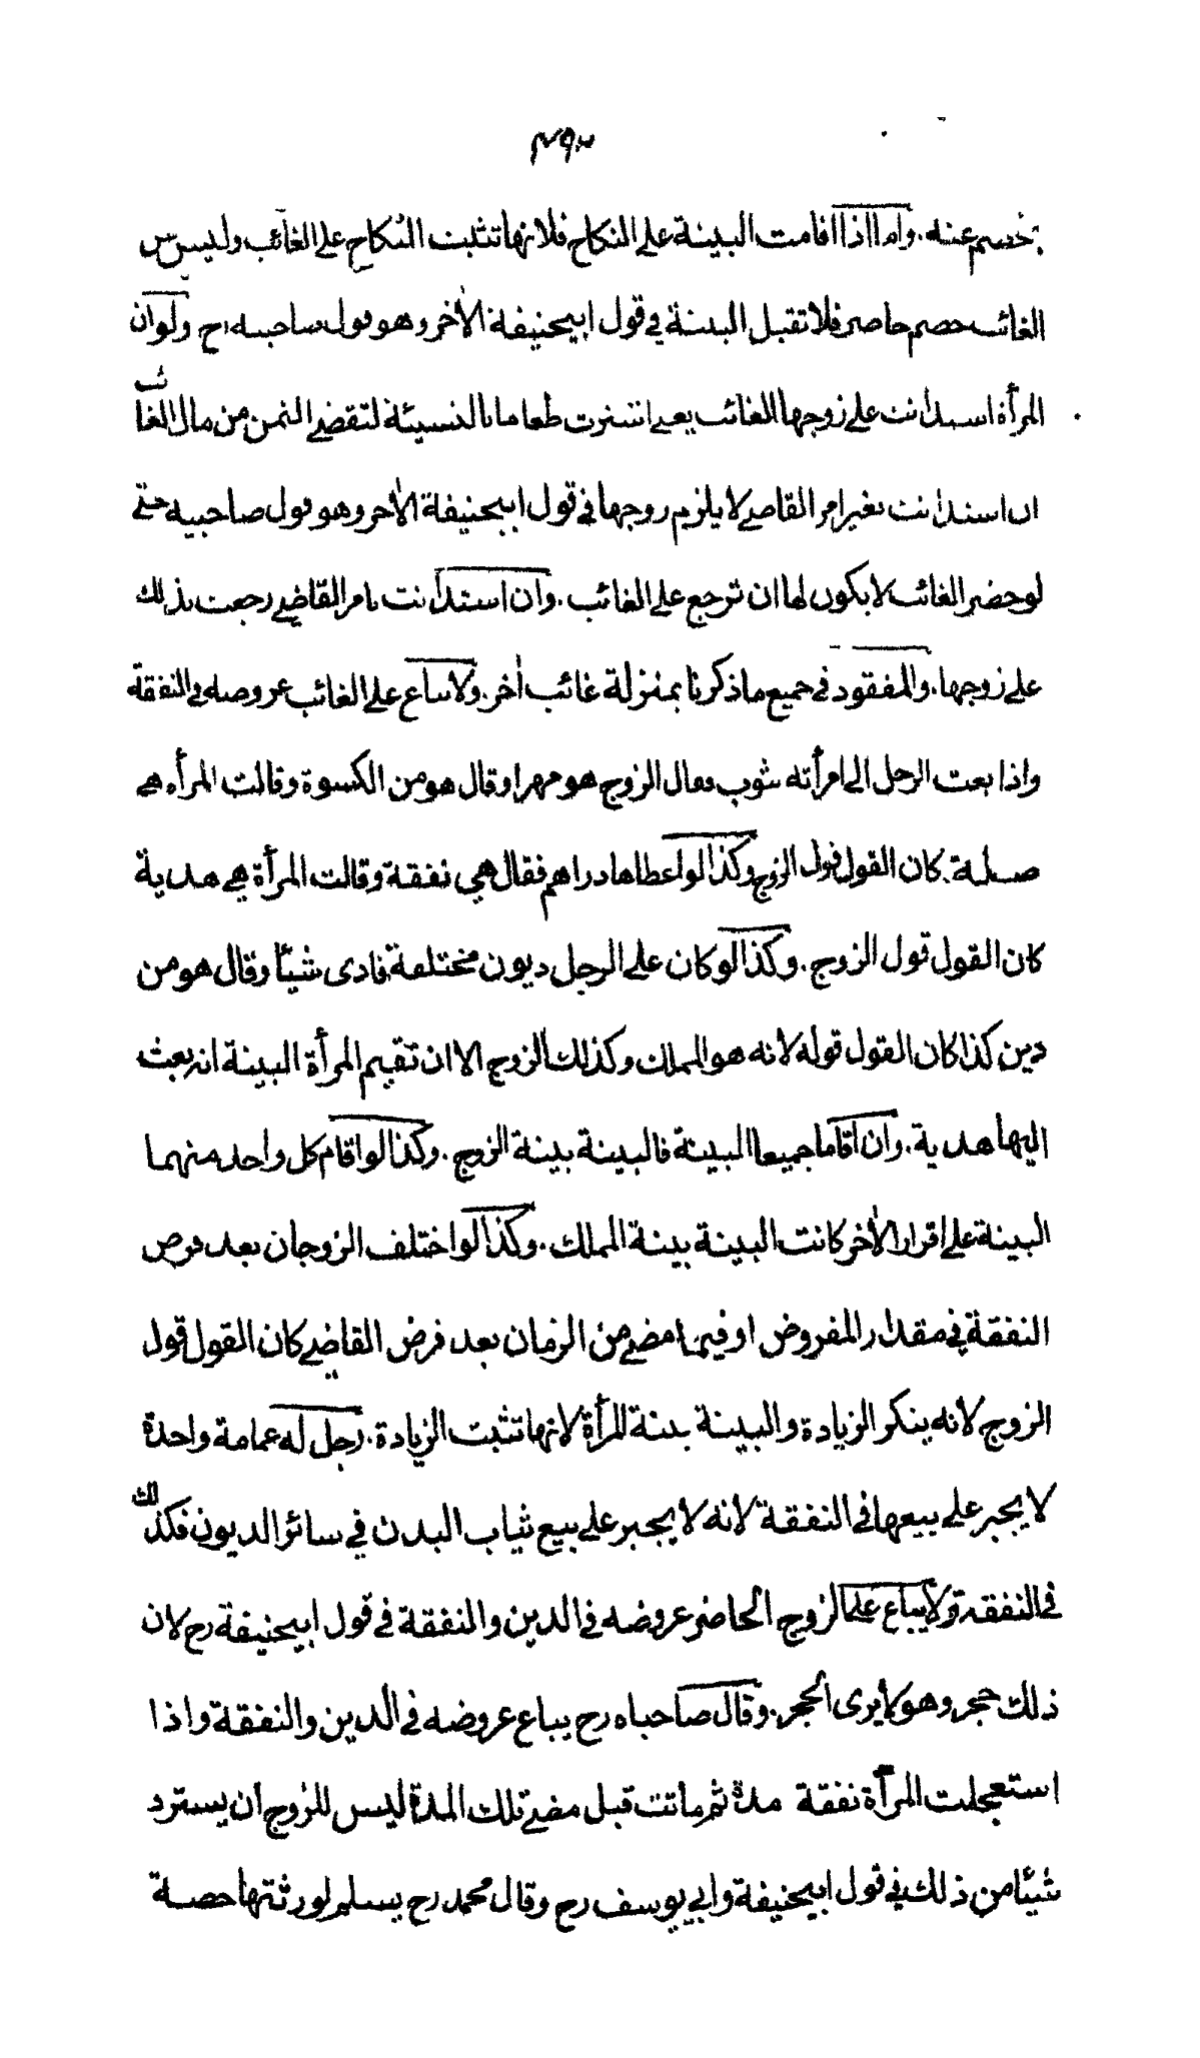 ٤٩٢
بخصم عنه . واما اذا اقامت البينة على النكاح فلانها تثبت النكاح على الغائب وليس س
الغائب خصم حاضر فلا تقبل البينة في قول ابيحنيفة الأخر وهو قول صاحبيه رح ولو ان
المرأة استدانت على زوجها الغائب يعني اشترت طعاما بالنسيئة لتقضي الثمن من مال الغائب
ان استدانت بغير امر القاضي لا يلزم زوجها في قول ابيحنيفة الأخر وهو قول صاحبيه حتى
لو حضر الغائب لا يكون لها ان ترجع على الغائب . وان استدانت بامر القاضي رجعت بذلك
على زوجها . والمفقود في جميع ما ذكرنا بمنزلة غائب أخر . ولا يباع على الغائب عروضه في النفقة
واذا بعث الرجل الى امرأته بثوب فقال الزوج هو مهر او قال هو من الكسوة وقالت المرأة هي
صلة كان القول قول الزوج وكذا لو اعطاها دراهم فقال هي نفقة وقالت المرأة هي هدية
كان القول قول الزوج . وكذا لو كان على الرجل ديون مختلفة فادى شيئا وقال هو من
دين كذا كان القول قوله لانه هو المملك وكذلك الزوج الا ان تقيم المرأة البينة انه بعث
اليها هدية . وان اقاما جميعا البينة فالبينة بينة الزوج . وكذا لو اقام كل واحد منهما
البينة على اقرار الأخر كانت البينة بينة المملك . وكذا لو اختلف الزوجان بعد فرض
النفقة في مقدار المفروض او فيما مضى من الزمان بعد فرض القاضي كان القول قول
الزوج لانه ينكر الزيادة والبينة بينة المرأة لانها تثبت الزيادة . رجل له عمامة واحدة
لا يجبر على بيعها في النفقة لانه لا يجبر على بيع ثياب البدن في سائر الديون فكذلك
في النفقة ولا يباع على الزوج الحاضر عروضه في الدين والنفقة في قول ابيحنيفة رح لان
ذلك حجر وهو لا يرى الحجر . وقال صاحباه رح يباع عروضه في الدين والنفقة واذا
استعجلت المرأة نفقة مدة ثم ماتت قبل مضي تلك المدة ليس للزوج ان يسترد
شيئا من ذلك في قول ابيحنيفة وابي يوسف رح وقال محمد رح يسلم لورثتها حصة